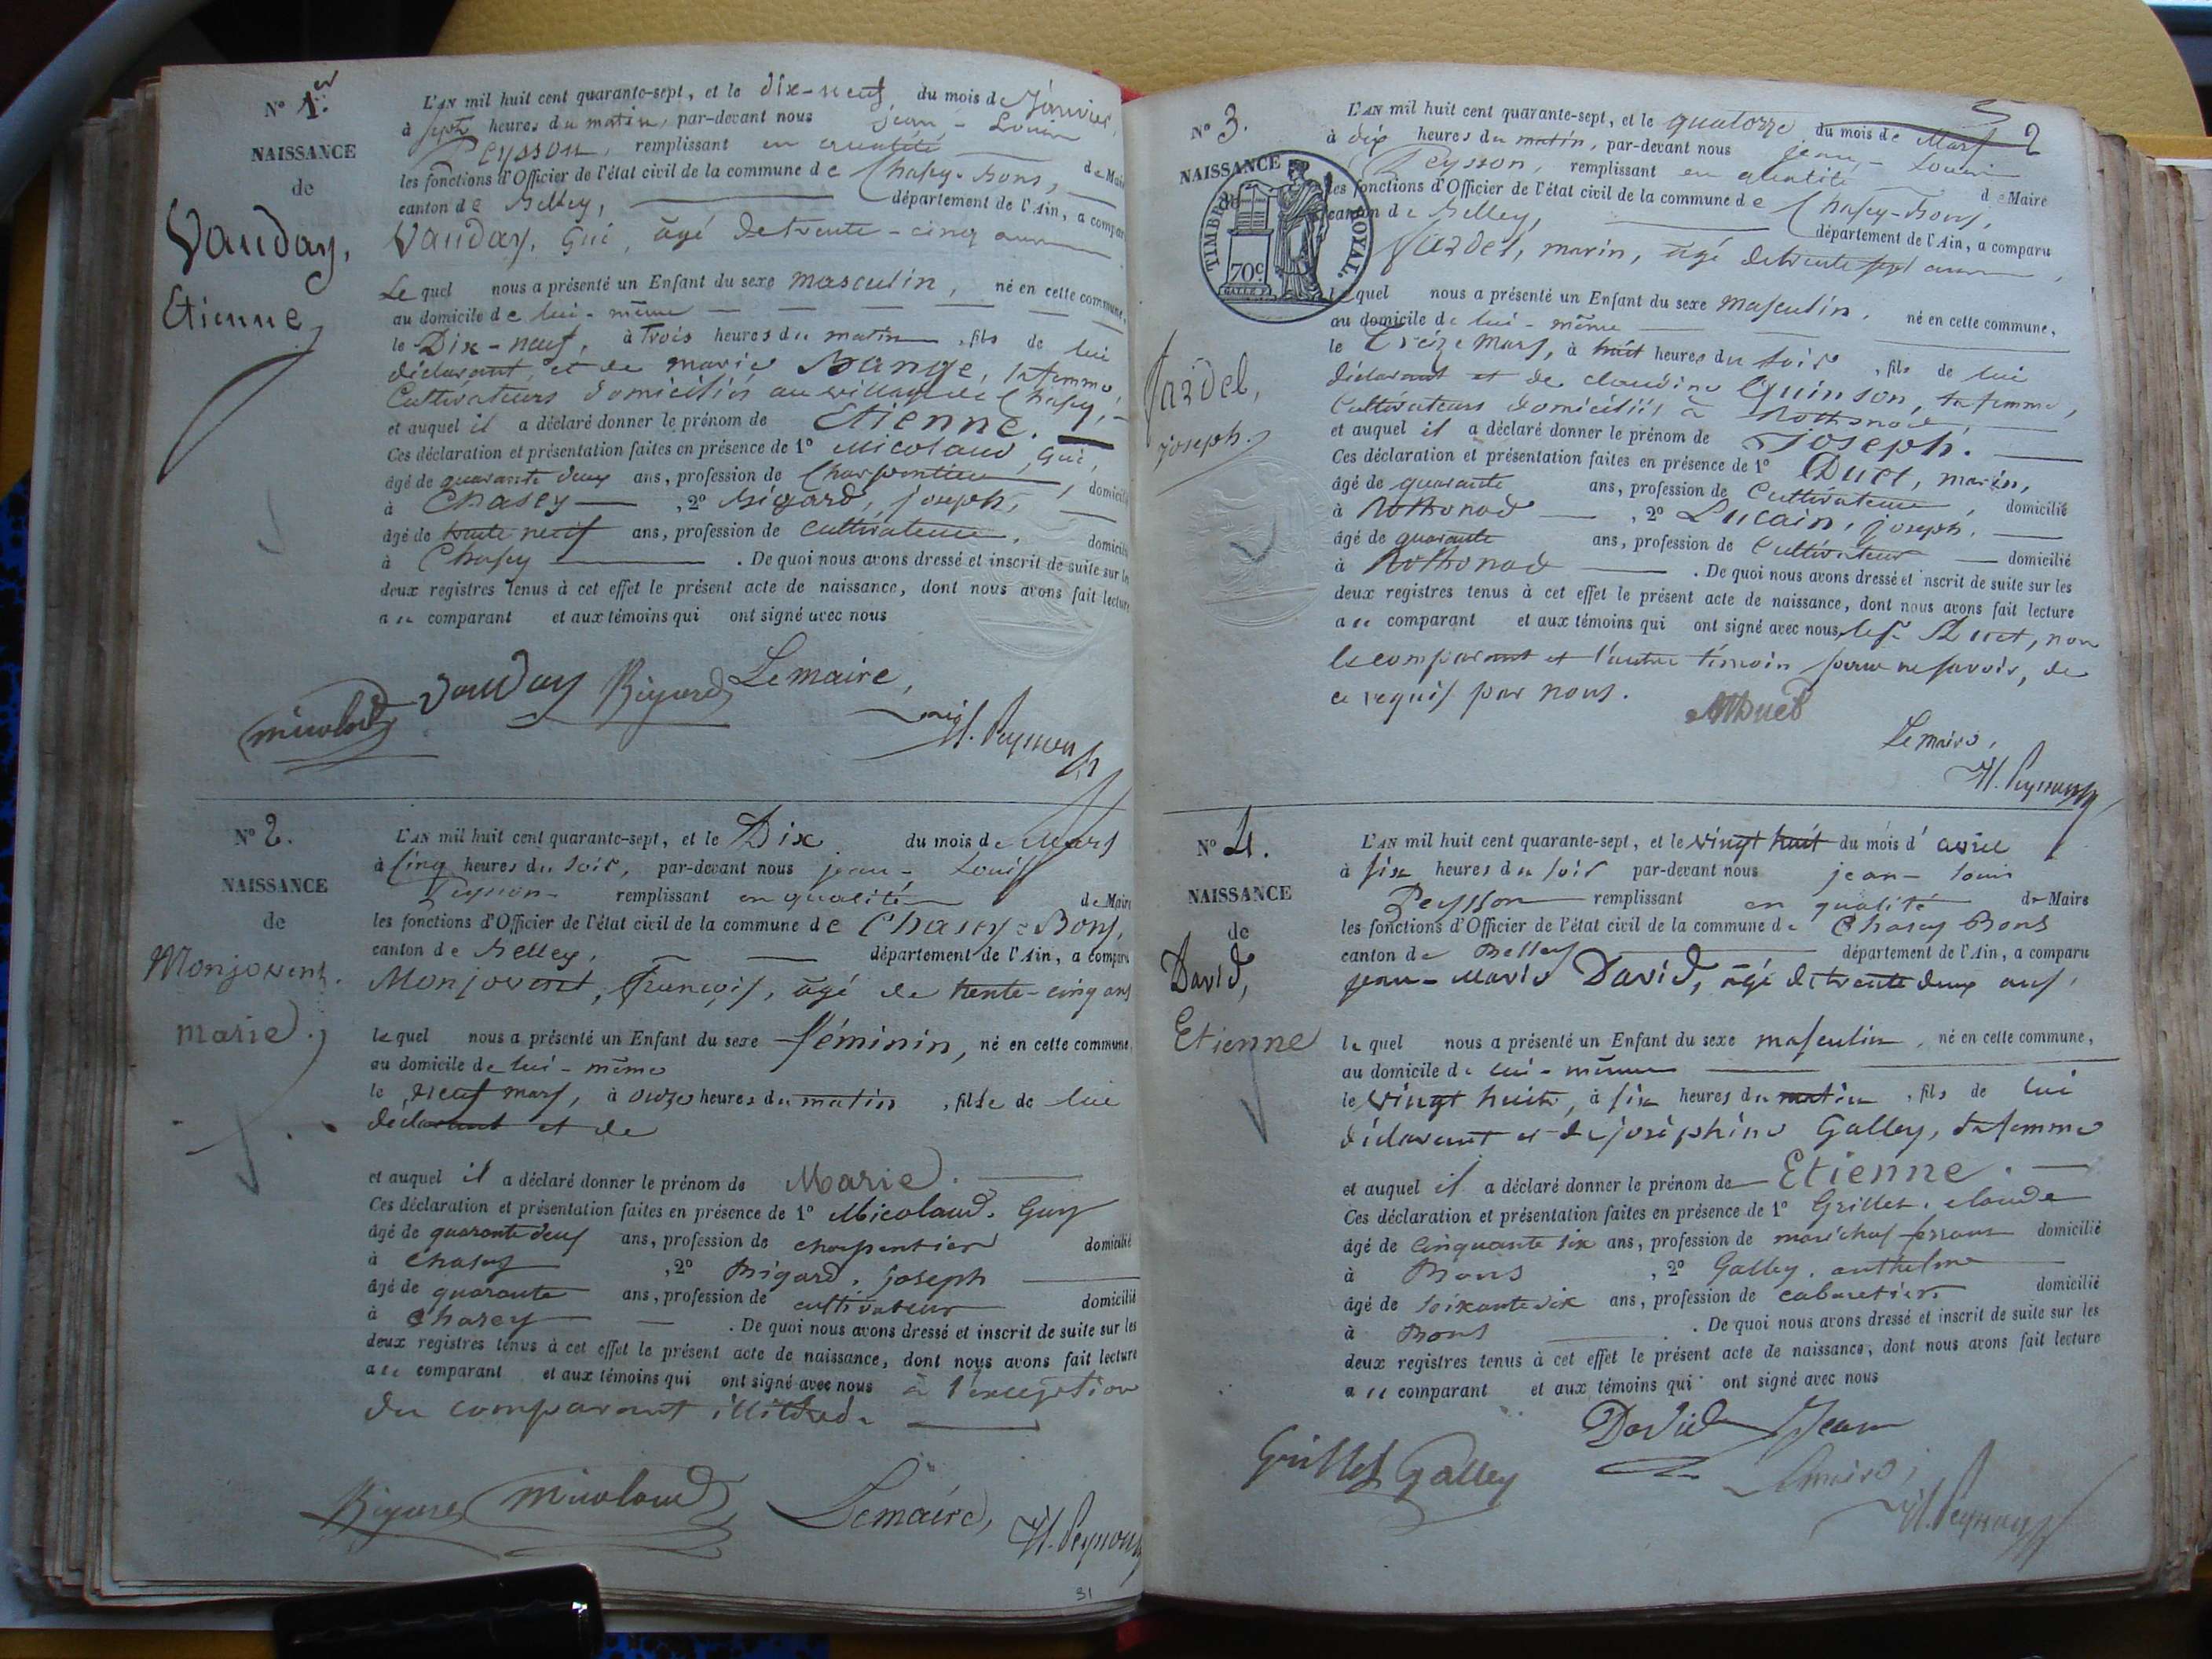 N° 1.er
NAISSANCE
de
Vauday,
Etienne
L'AN mil huit cent quarante-sept, et le dix-neuf du mois de Janvier,
à sept heures du matin, par-devant nous jean-Louis
Peysson, remplissant en qualité de Maire
les fonctions d'Officier de l'état civil de la commune de Chasey-Bons,
canton de Belley, département de l'Ain, a comparu
Vauday, Gui, âgé de trente-cinq ans
Lequel nous a présenté un Enfant du sexe masculin, né en cette commune,
au domicile de lui-même
le Dix-neuf, à trois heures du matin, fils de lui
déclarant et de marie Bange, sa femme,
Cultivateurs domiciliés au village de Chasey,
et auquel il a déclaré donner le prénom de Etienne.
Ces déclaration et présentation faites en présence de 1° Micolaud, Gui,
âgé de quarante deux ans, profession de Charpentier, domicilié
à Chasey, 2° Bigard, joseph,
âgé de trente neuf ans, profession de cultivateur, domicilié
à Chasey. De quoi nous avons dressé et inscrit de suite sur les
deux registres tenus à cet effet le présent acte de naissance, dont nous avons fait lecture
au comparant et aux témoins qui ont signé avec nous
micolaud vauday Bigard Le maire,
Peysson
N° 2.
NAISSANCE
de
Monjovent.
marie.
L'AN mil huit cent quarante-sept, et le Dix du mois de Mars
à cinq heures du soir, par-devant nous jean-Louis
Peysson remplissant en qualité de Maire
les fonctions d'Officier de l'état civil de la commune de Chasey-Bons,
canton de Belley, département de l'Ain, a comparu
Monjovent, françois, âgé de trente-cinq ans
lequel nous a présenté un Enfant du sexe féminin, né en cette commune,
au domicile de lui-même
le neuf mars, à onze heures du matin, fille de lui
déclarant et de
et auquel il a déclaré donner le prénom de Marie.
Ces déclaration et présentation faites en présence de 1° Micolaud. Guy
âgé de quarante deux ans, profession de charpentier domicilié
à Chasey, 2° Bigard. joseph
âgé de quarante ans, profession de cultivateur domicilié
à Chasey. De quoi nous avons dressé et inscrit de suite sur les
deux registres tenus à cet effet le présent acte de naissance, dont nous avons fait lecture
au comparant et aux témoins qui ont signé avec nous à l'exception
du comparant illitéré.
Bigard micolaud Le maire,
Peysson
31
2
N° 3.
NAISSANCE
de
TIMBRE ROYAL.
70c
Jardel,
joseph.
L'AN mil huit cent quarante-sept, et le quatorze du mois de Mars
à dix heures du matin, par-devant nous jean-Louis
Peysson, remplissant en qualité de Maire
les fonctions d'Officier de l'état civil de la commune de Chasey-Bons,
canton de Belley, département de l'Ain, a comparu
Jardel, marin, âgé de trente sept ans,
lequel nous a présenté un Enfant du sexe masculin, né en cette commune,
au domicile de lui-même
le treize Mars, à huit heures du soir, fils de lui
déclarant et de claudine Quinson, sa femme,
Cultivateurs domiciliés à Rothonod,
et auquel il a déclaré donner le prénom de Joseph.
Ces déclaration et présentation faites en présence de 1° Duet, marin,
âgé de quarante ans, profession de Cultivateur, domicilié
à Rothonod, 2° Lucain, joseph,
âgé de quarante ans, profession de Cultivateur domicilié
à Rothonod. De quoi nous avons dressé et inscrit de suite sur les
deux registres tenus à cet effet le présent acte de naissance, dont nous avons fait lecture
au comparant et aux témoins qui ont signé avec nous, le sr Duet, non
le comparant et l'autre témoin pour ne savoir, de
ce requis par nous.
Duet
Le maire,
Peysson
N° 4.
NAISSANCE
de
David,
Etienne
L'AN mil huit cent quarante-sept, et le vingt huit du mois d'avril
à six heures du soir par-devant nous jean-louis
Peysson remplissant en qualité de Maire
les fonctions d'Officier de l'état civil de la commune de Chasey Bons
canton de Belley département de l'Ain, a comparu
jean-Marie David, âgé de trente deux ans,
lequel nous a présenté un Enfant du sexe masculin, né en cette commune,
au domicile de lui-même
le vingt huit, à six heures du matin, fils de lui
déclarant et de joséphine Galley, sa femme
et auquel il a déclaré donner le prénom de Etienne.
Ces déclaration et présentation faites en présence de 1° Grillet. claude
âgé de cinquante six ans, profession de maréchal-ferrant domicilié
à Bons, 2° Galley. anthelme
âgé de soixante six ans, profession de cabaretier domicilié
à Bons. De quoi nous avons dressé et inscrit de suite sur les
deux registres tenus à cet effet le présent acte de naissance, dont nous avons fait lecture
au comparant et aux témoins qui ont signé avec nous
Grillet Galley David Jean
Le maire,
Peysson